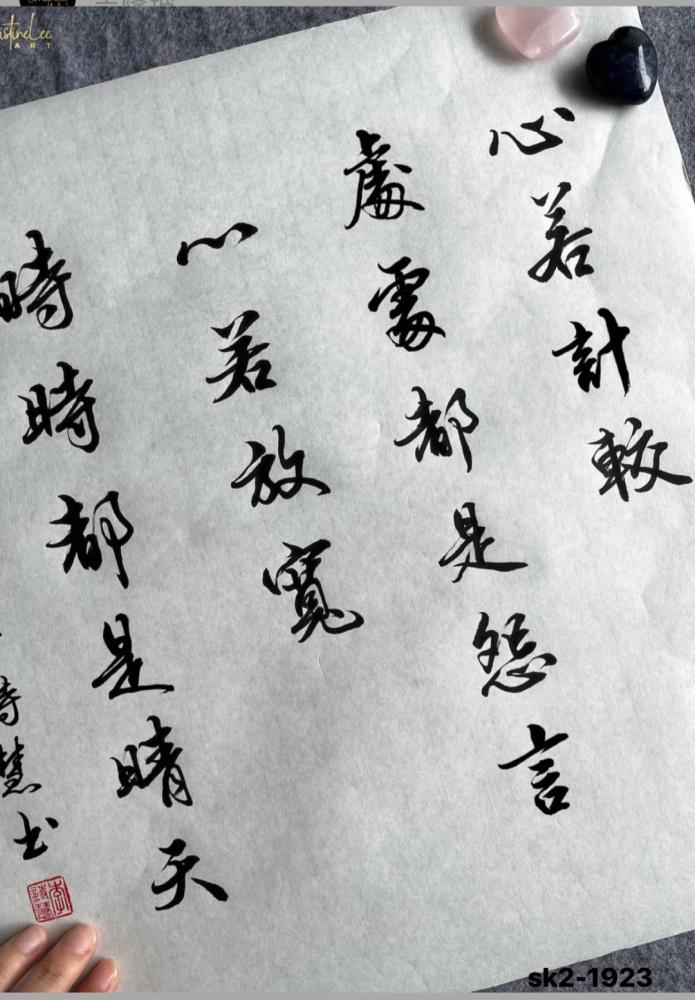 心若計較
處處都是怨言
心若放寬
時時都是晴天
詩慧书
ART
sk2-1923